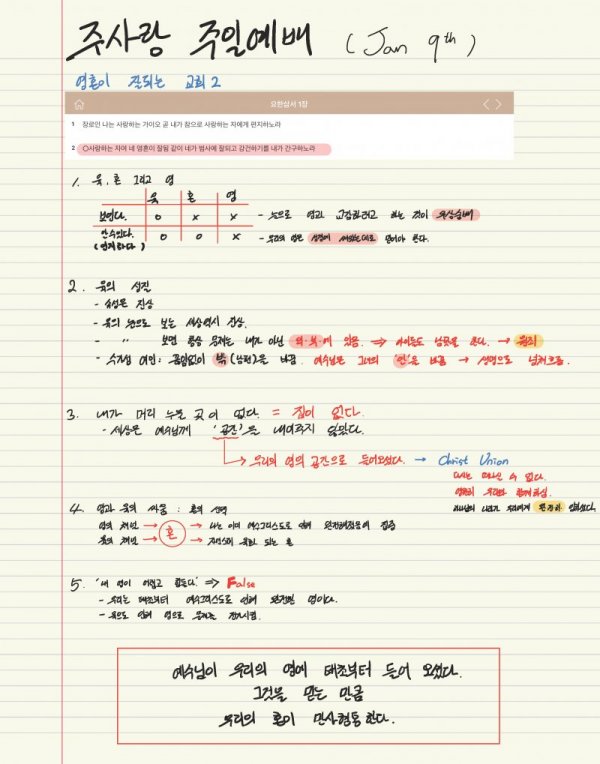 주사랑 주일예배 (Jan 9th)
영혼이 잘되는 교회 2
요한삼서 1장
1 장로인 나는 사랑하는 가이오 곧 내가 참으로 사랑하는 자에게 편지하노라
2 ○사랑하는 자여 네 영혼이 잘됨 같이 네가 범사에 잘되고 강건하기를 내가 간구하노라
1. 육, 혼 그리고 영
육 혼 영
보인다. o x x - 눈으로 영과 교감하려고 하는 것이 우상숭배
알 수 있다. o o x - 우리의 영은 성경에 써있는대로 믿어야 한다.
(인지하다)
2. 육의 성질
- 속성은 진상
- 육의 눈으로 보는 세상역시 진상.
- " 보면 항상 문제는 내가 아닌 외·부·에 있음. ⇒ 아이들도 남탓을 한다. → 원죄
- 수가성 여인: 끊임없이 밖(남편)을 바꿈. 예수님은 그녀의 '안'을 바꿈 → 생명으로 넘쳐흐름.
3. 내가 머리 누울 곳이 없다. = 집이 없다.
- 세상은 예수님께 '공간'을 내어주지 않았다.
→ 우리의 영의 공간으로 들어오셨다. → Christ Union
다시는 떠나실 수 없다.
영원히 우리와 함께하심.
하나님의 나라가 우리에게 완전히 임하셨다.
4. 영과 육의 싸움 : 혼의 선택
영의 채널 → 혼 → 나는 이미 예수그리스도로 인해 완전해졌음에 집중
육의 채널 → → 자연스레 육화 되는 혼
5. '내 영이 어렵고 힘들다.' ⇒ False
- 우리는 태초부터 예수그리스도로 인해 완전한 영이다.
- 육으로 인해 영으로 문제를 전가시킴.
예수님이 우리의 영에 태초부터 들어 오셨다.
그것을 믿는 만큼
우리의 혼이 만사형통한다.